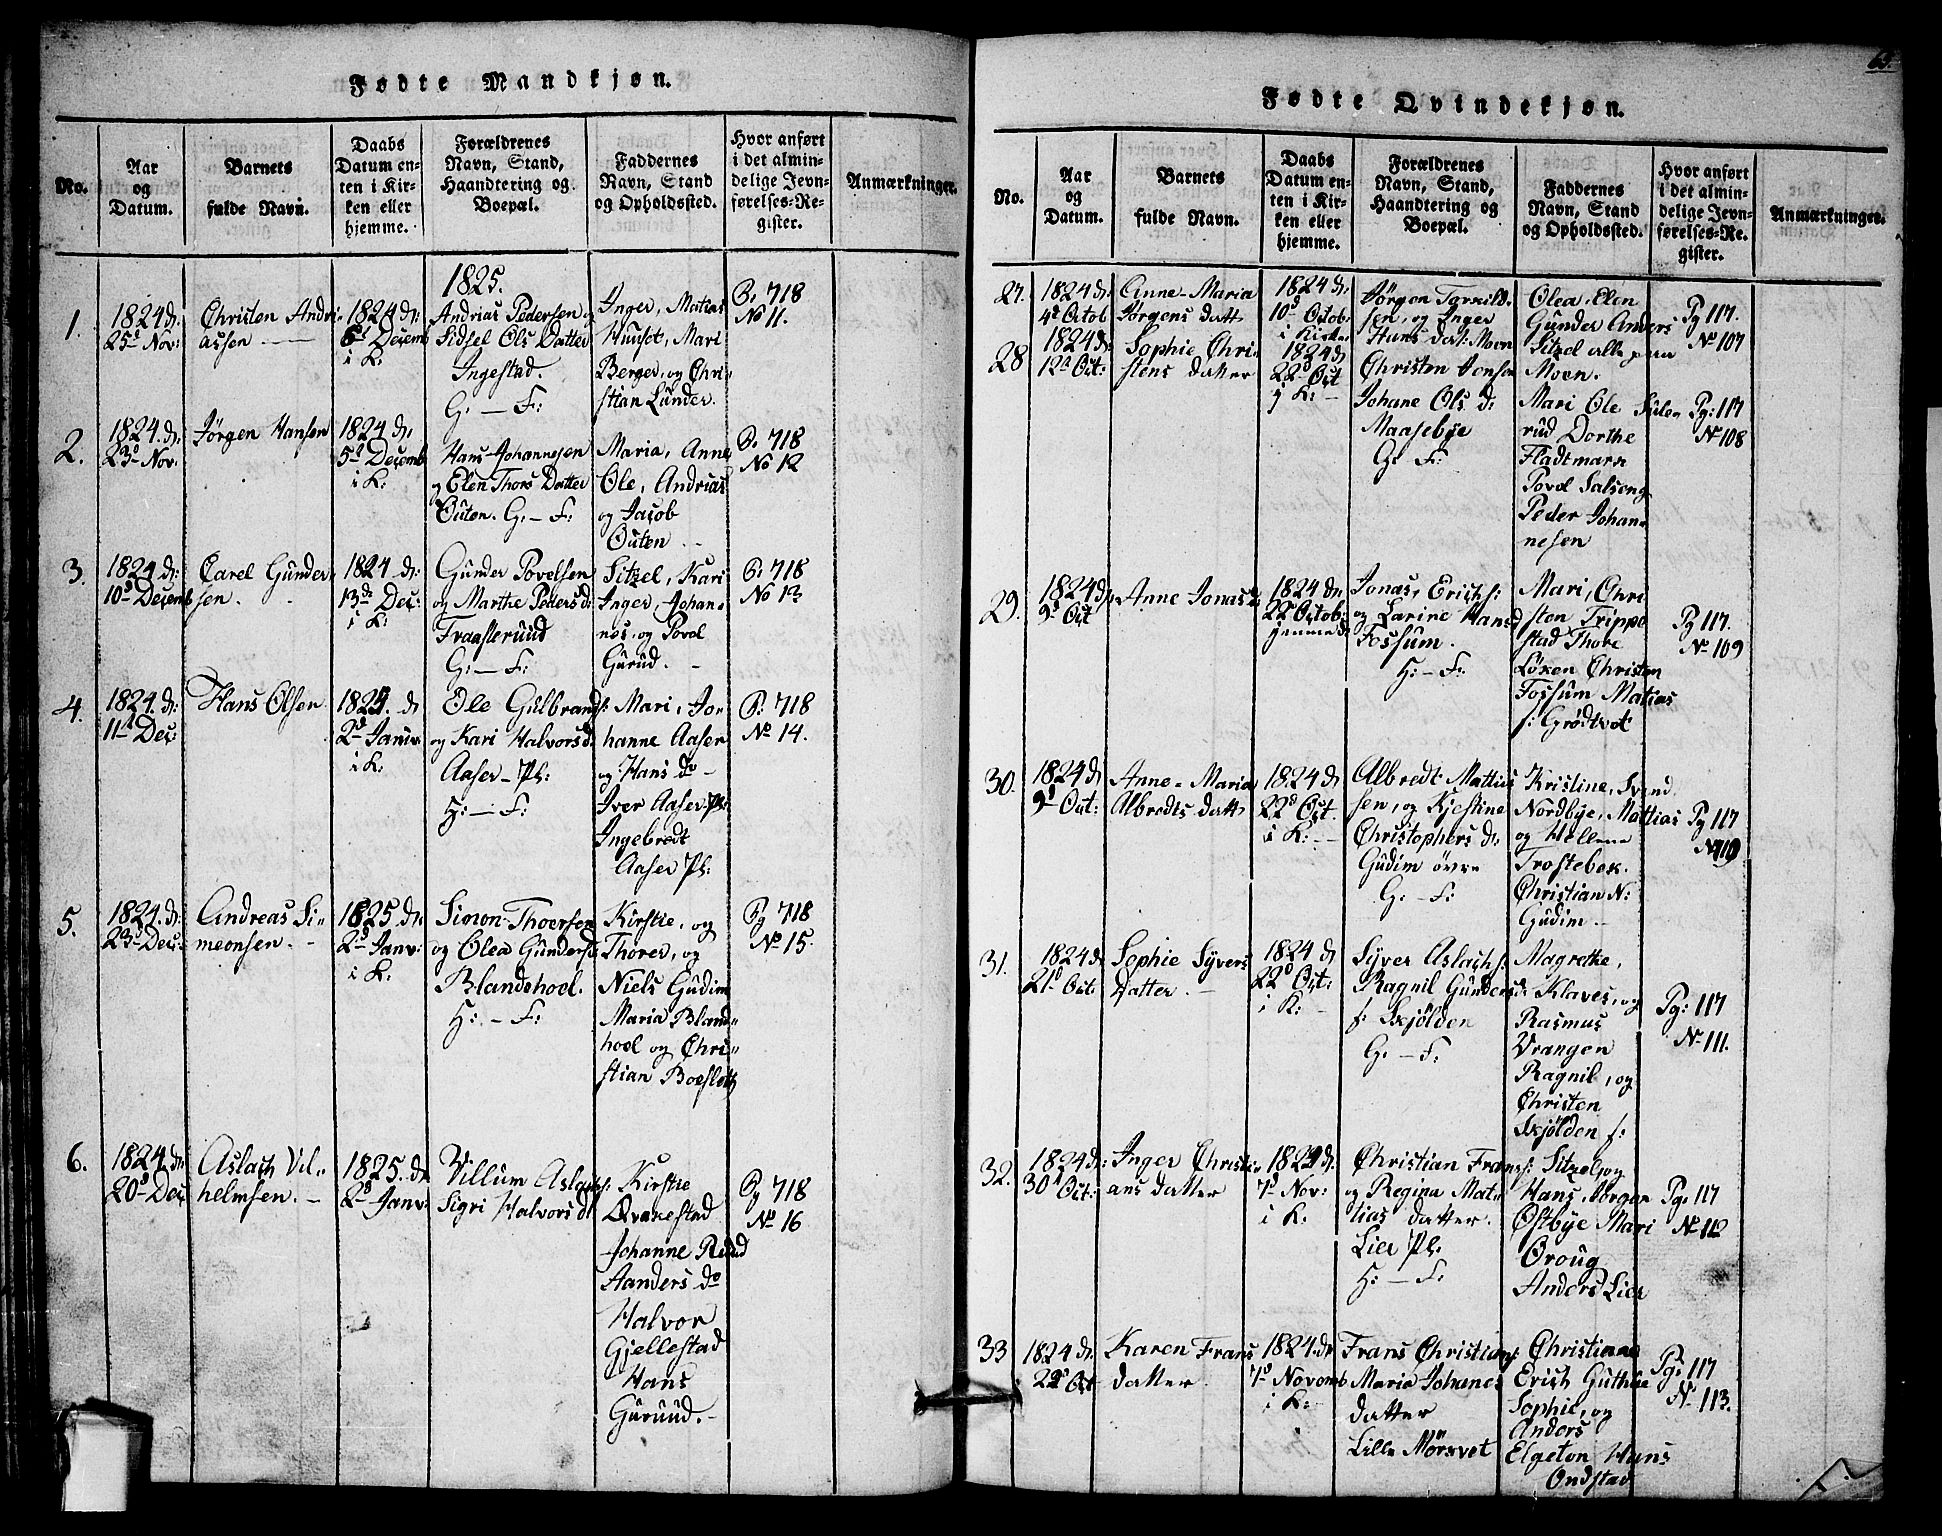 Fødte Mandkjøn.
No.
Aar
og
Datum.
Barnets
fulde Navn.
Daabs
Datum en-
ten i Kir-
ken eller
hjemme.
Forældrenes
Navn, Stand,
Haandtering og
Boepæl.
Faddernes
Navn, Stand
og Opholdssted.
Hvor anført
i det almin-
delige Jevn-
førelses-Re-
gister.
Anmærkninger.
1825.
1.
1824 d:
25d Nov:
Christen Andri-
assen
1824 d:
6t Decemb
i K:
Andrias Pedersen og
Sidsel Ols Datter
Ingestad.
G: — F:
Inger, Matias
Huuset, Mari
Berger, og Chri-
stian Lunder.
P: 718
No 11.
2.
1824. d:
23d Nov:
Jørgen Hansen
1824 d:
5t Decemb
i K:
Hans Johannesen
og Elen Thors Datter
Outen. G: — F:
Maria, Anne
Ole, Andrias
og Jacob
Outen
P: 718
No 12
3.
1824 d:
10d Decemb
Carel Gunder-
sen.
1824 d:
13de Dec:
i K:
Gunder Povelsen
og Marthe Peders d:
Fraasterund
G: — F:
Sitzel, Kari
Inger, Johan-
nes, og Povel
Gurud.
P: 718
No 13
4.
1824. d:
11d Dec:
Hans Olsen
1825. d
2d Janv.
i K:
Ole Gulbrands:
og Kari Halvorsd:
Aaser - Pl:
H: — F:
Mari, Jo-
hanne Aaser
og Hans do
Iver Aaser Pl:
Ingebredt
Aaser Pl:
P: 718
No 14.
5.
1824. d:
23d Dec:
Andreas Si-
meonsen.
1825. d:
2d Janv:
i K:
Simon Thoersen
og Olea Gundersd:
Blandehoel.
H: — F:
Kirstie, og
Thorer, og
Niels Gudim
Maria Bland-
hoel og Chri-
stian Boeslet
Pg 718
No 15.
6.
1824. d:
20d Dec
Aslach Vil-
helmsen.
1825. d:
2d Janv:
Villum Aslachs:
Sigri Halvors d:
Kirstie
Qvanestad
Johanne Ruud
Aanders do
Halvor
Gjellestad
Hans
Guruud.
Pg 718
No 16
65.
Fødte Qvindekjøn.
No.
Aar
og
Datum.
Barnets
fulde Navn.
Daabs
Datum en-
ten i Kir-
ken eller
hjemme.
Forældrenes
Navn, Stand,
Haandtering og
Boepæl.
Faddernes
Navn, Stand
og Opholdssted.
Hvor anført
i det almin-
delige Jevn-
førelses-Re-
gister.
Anmærkninger.
27.
1824 d:
4d Octob
Anne-Maria
Jørgens datt
1824 d:
10d Octob:
i Kirke
Jørgen Tarnild-
sen, og Inger
Hans dat: Moen
Olea, Elen
Gunder Anders
Sitzel alle paa
Moen.
Pg 117.
No 107
28
1824 d:
12te Oct:
Sophie Chri-
stens datter
1824 d
22d Oct
i K:
Christen Jonsen
Johane Ols d:
Maasebye
G: F:
Mari Ole Sule-
rud Dorthe
Fladtmarn
Povel Salseng
Peder Johan-
nesen
Pg: 117
No 108
29.
1824 d:
9d Oct
Anne Jonas d:
1824 d:
22d Octob:
jemmed:
Jonas, Erichs:
og Larine Hansd
Fossum.
H: — F:
Mari, Chri
sten Trippe
stad Thore
Løken Christen
Fossum Matias
s: Grødtvet
Pg 117.
No 109
30.
1824 d
9d Oct:
Anne-Maria
Albredts datt
1824 d
22d Oct.
i K:
Albredt Mattias
sen, og Kjestine
Christophers d:
Gudim övre
G: — F:
Kristine, Svend
Nordbye, Mattias
og Hellene
Trostebek.
Christian N:
Gudim
Pg 117
No 110
31.
1824 d
21d Oct:
Sophie Syvers
datter.
1824 d
22d Oct:
i K:
Syver Aslachs:
Ragnil Gundersd:
s: Skjølden
G: — F:
Magrethe,
Klaves, og
Rasmus
Vrangen
Ragnil, og
Christen
Skjølden s:
Pg: 117
No 111.
32.
1824 d:
30d Oct:
Inger Christi-
ans datter
1824 d.
7d Nov:
i K:
Christian Frans:
og Regina Mat-
tias datter.
Lier Pl:
H: — F:
Sitzel, og
Hans, Jørgen
Østbye Mari
Oroug
Anders Lier
Pg: 117
No 112
33
1824 d:
22d Oct
Karen Frans
datter.
1824. d:
7d Novemb
i K:
Frans Christians:
Maria Johanes
datter
Lille Mørvet
Christianne
Erich Guthue
Sophie, og
Anders
Elgeton Hans
Ondstad
Pg: 117
No 113.